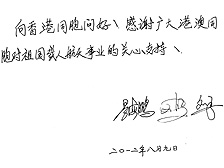 向香港同胞问好！感谢广大港澳同
胞对祖国载人航天事业的关心支持！
景海鹏
二〇一二年八月九日